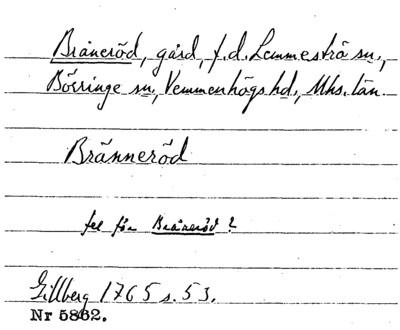 Bråneröd, gård, f.d. Lemmeströ sn.,
Börringe sn, Vemmenhögs hd., Mhs. län.
Bränneröd
fel för Bråneröd?
Gillberg 1765 s. 53.
Nr 5862.